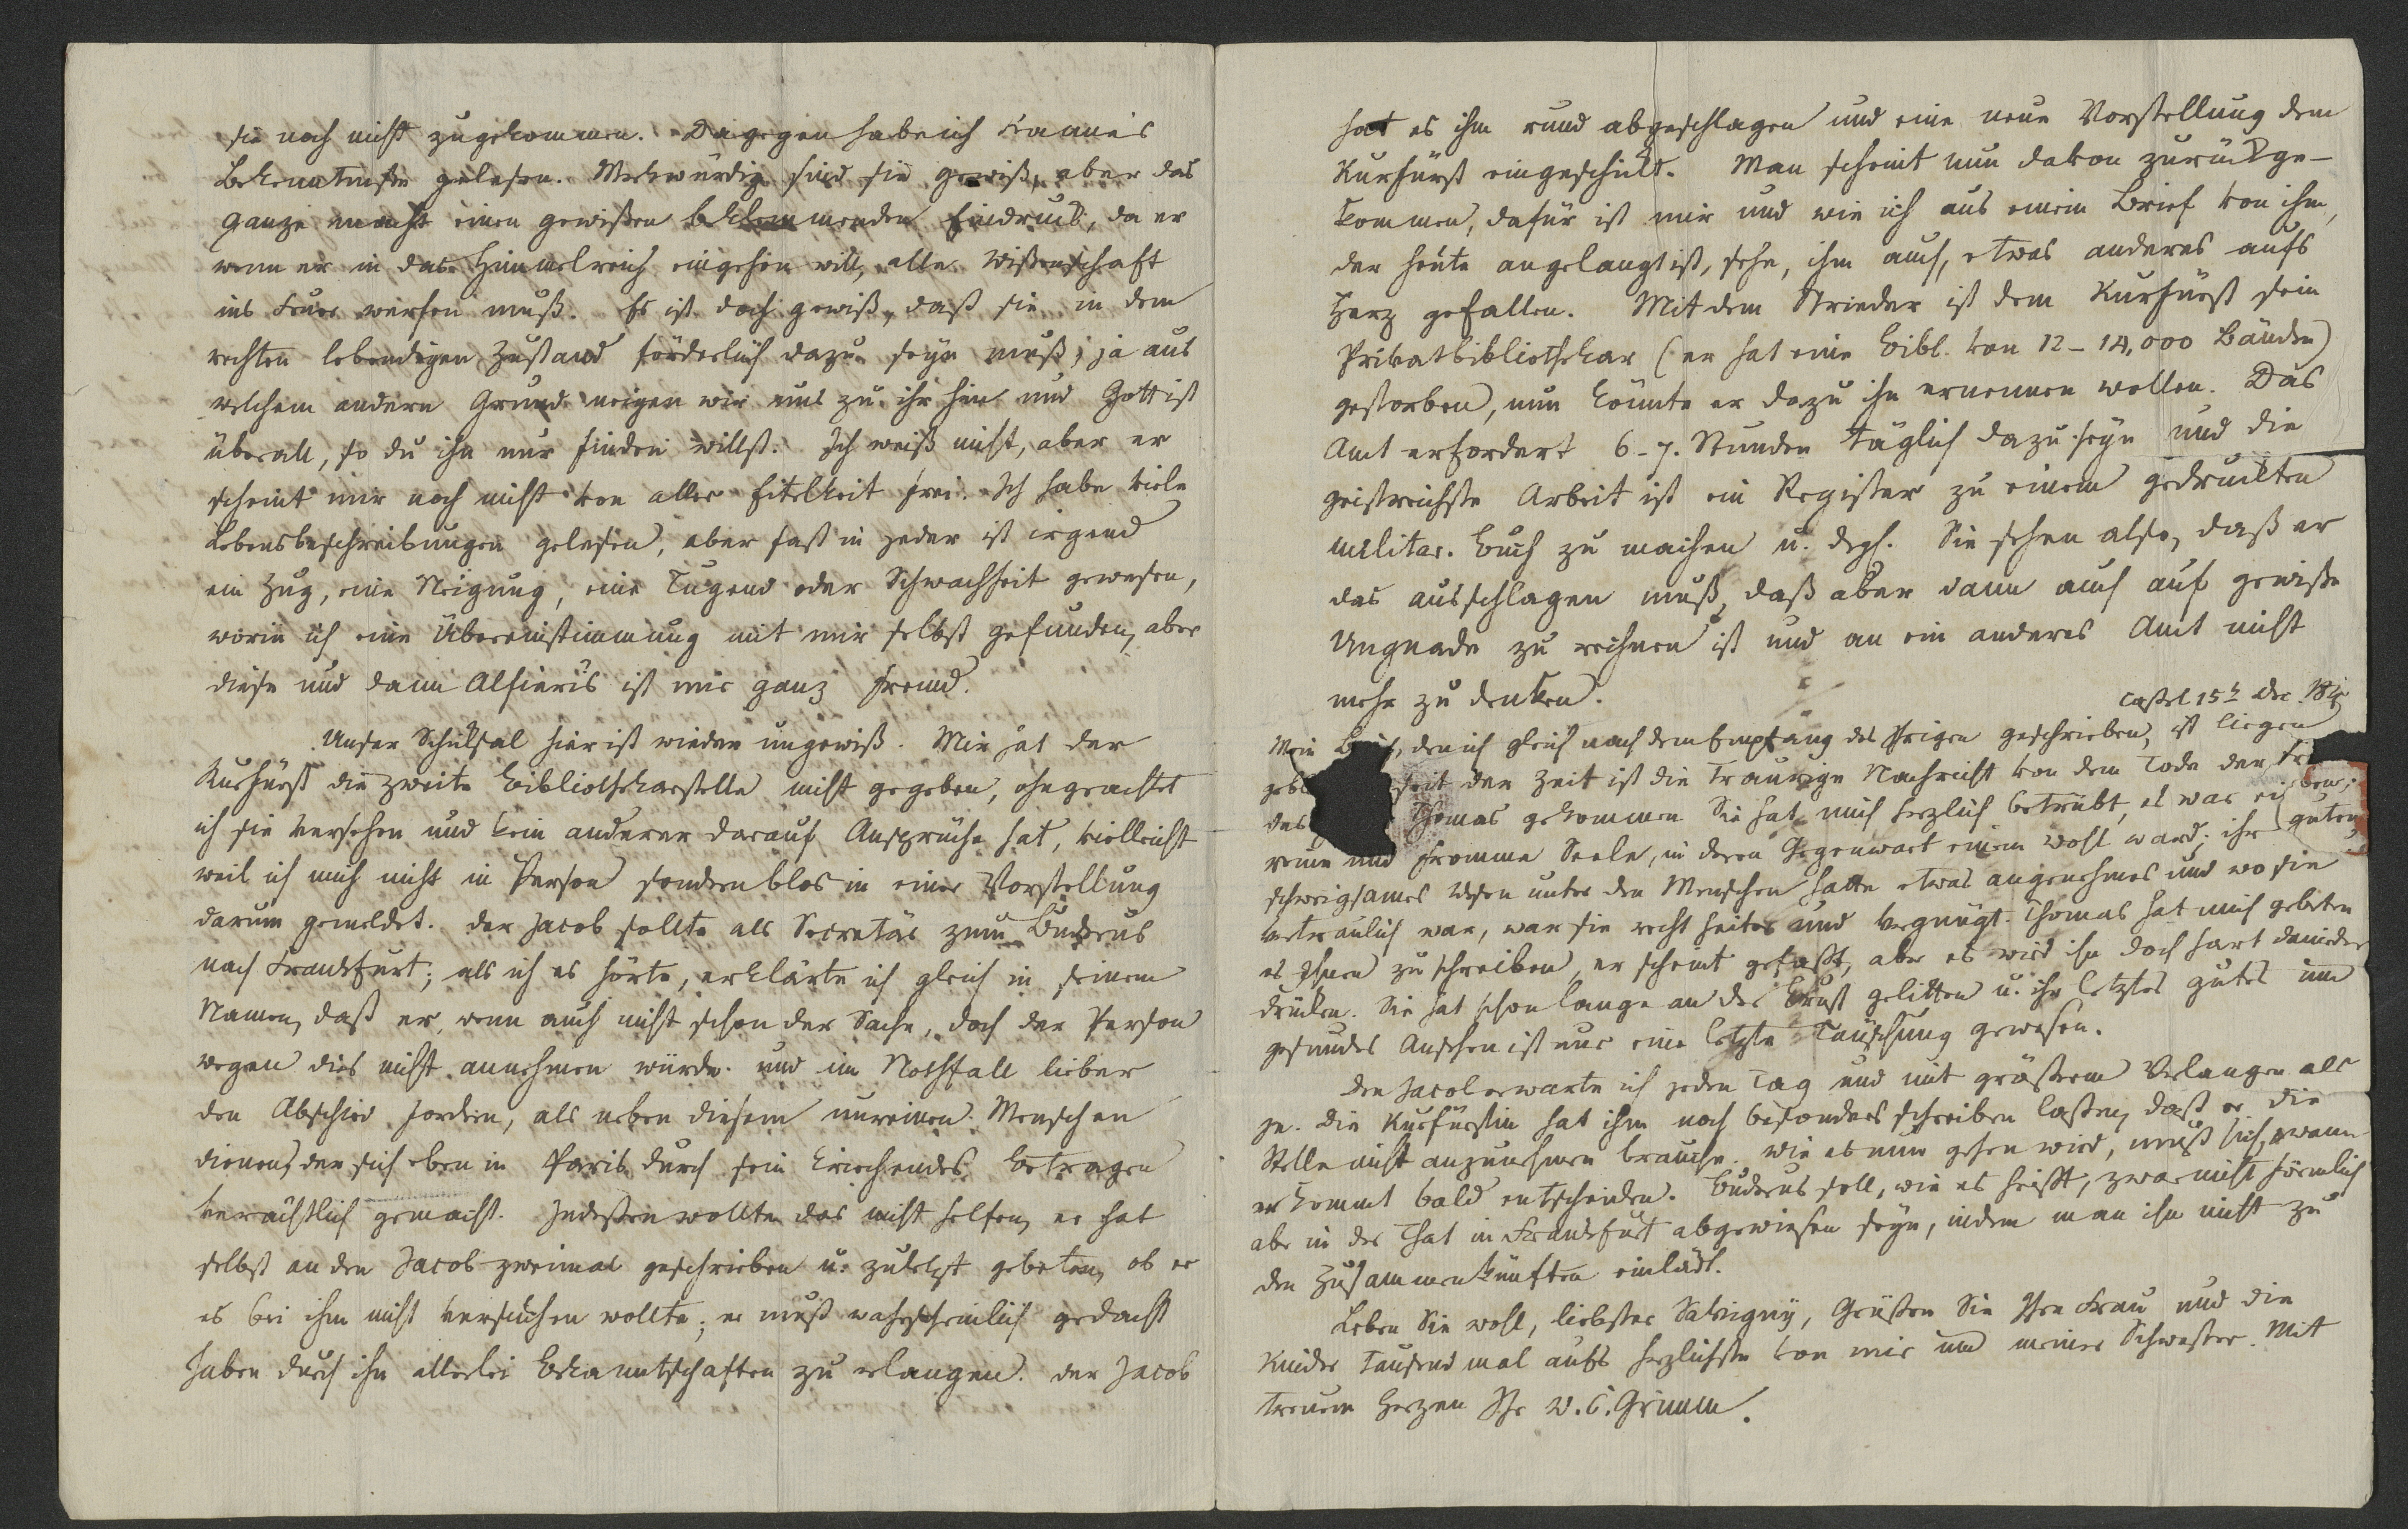 sie noch nicht zugekommen. Dagegen habe ich Kanne's
Bekenntniße gelesen. Merkwürdig sind sie gewiß, aber das
ganze macht einen gewißen beklemmenden Eindruck, da er
wenn er in das Himmelreich eingehen will, alle Wißenschaft
ins Feuer werfen muß. Es ist doch gewiß, daß sie in dem
rechten lebendigen Zustand förderlich dazu seyn muß, ja aus
welchem andern Grund neigen wir uns zu ihr hin und Gott ist
überall, so du ihn nur finden willst. Ich weiß nicht, aber er
scheint mir noch nicht von aller Eitelkeit frei. Ich habe viele
Lebensbeschreibungen gelesen, aber fast in jeder ist irgend
ein Zug, eine Neigung, eine Tugend oder Schwachheit gewesen,
worin ich eine Übereinstimmung mit mir selbst gefunden, aber
diese und dann Alfieris ist mir ganz fremd.
Unser Schicksal hier ist wieder ungewiß. Mir hat der
Kurfürst die zweite Bibliothekarstelle nicht gegeben, ohngeachtet
ich sie versehen und kein anderer darauf Ansprüche hat, vielleicht
weil ich mich nicht in Person sondern blos in einer Vorstellung
darum gemeldet. Der Jacob sollte als Secretär zum Buderus
nach Frankfurt; als ich es hörte, erklärte ich gleich in seinem
Namen, daß er, wenn auch nicht schon der Sache, doch der Person
wegen dies nicht annehmen würde und im Nothfall lieber
den Abschied fordern, als neben diesem unreinen Menschen
dienen, der sich eben in Paris durch sein kriechendes Betragen
verächtlich gemacht. Indeßen wollte das nicht helfen, er hat
selbst an den Jacob zweimal geschrieben u. zuletzt gebeten, ob er
es bei ihm nicht versuchen wollte; er muß wahrscheinlich gedacht
haben durch ihn allerlei Bekanntschaften zu erlangen. Der Jacob
hat es ihm rund abgeschlagen und eine neue Vorstellung dem
Kurfürst eingeschickt. Man scheint nun davon zurückge-
kommen, dafür ist mir und wie ich aus einem Brief von ihm,
der heute angelangt ist, sehe, ihm auch, etwas anderes aufs
Herz gefallen. Mit dem Strieder ist dem Kurfürst sein
Privatbibliothekar (er hat eine Bibl. von 12-14,000 Bänden)
gestorben, nun könnte er dazu ihn ernennen wollen. Das
Amt erfordert 6-7. Stunden täglich dazu seyn und die
geistreichste Arbeit ist ein Register zu einem gedruckten
militar. Buch zu machen u. dgl. Sie sehen also, daß er
das ausschlagen muß, daß aber dann auch auf gewiße
Ungnade zu rechnen ist und an ein anderes Amt nicht
mehr zu denken.
Caßel 15t Dec.
Mein Brief, den ich gleich nach dem Empfang des Ihrigen geschrieben, ist liegen
seit der Zeit ist die traurige Nachricht von dem Tode der
des Thomas gekommen Sie hat mich herzlich betrübt, es war guten
reine und fromme Seele, in deren Gegenwart einem wohl ward; ihr
schweigsames Wesen unter den Menschen hatte etwas angenehmes und wo sie
vertraulich war, war sie recht heiter und vergnügt. Thomas hat mich gebeten
es Ihnen zu schreiben, er scheint gefaßt, aber es wird ihn doch hart danieder
drücken. Sie hat schon lange an der Brust gelitten u. ihr letztes gutes und
gesundes Ansehen ist nur eine letzte Täuschung gewesen.
Den Jacob erwarte ich jeden Tag und mit größerm Verlangen als
je. Die Kurfürstin hat ihm noch besonders schreiben laßen, daß er die
Stelle nicht anzunehmen brauche. Wie es nun gehen wird, muß sich, wann
er kommt bald entscheiden. Buderus soll, wie es heißt, zwar nicht förmlich
aber in der That in Frankfurt abgewiesen seyn, indem man ihn nicht zu
den Zusammenkünften einlädt.
Leben Sie wohl, liebster Savigny, Grüßen Sie Ihre Frau und die
Kinder tausend mal aufs herzlichste von mir und meiner Schwester. Mit
treuem Herzen Ihr W. C. Grimm.